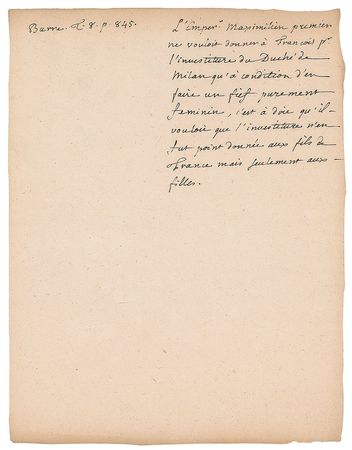 Barre. T. 8. p. 845.
L'Emper.r Maximilien premier
ne vouloit donner à François p.r
l'investiture du Duché de
Milan qu'à condition d'en
faire un fief purement
feminin, c'est à dire qu'il
vouloit que l'investiture n'en
fut point donnée aux fils de
France mais seulement aux
filles.